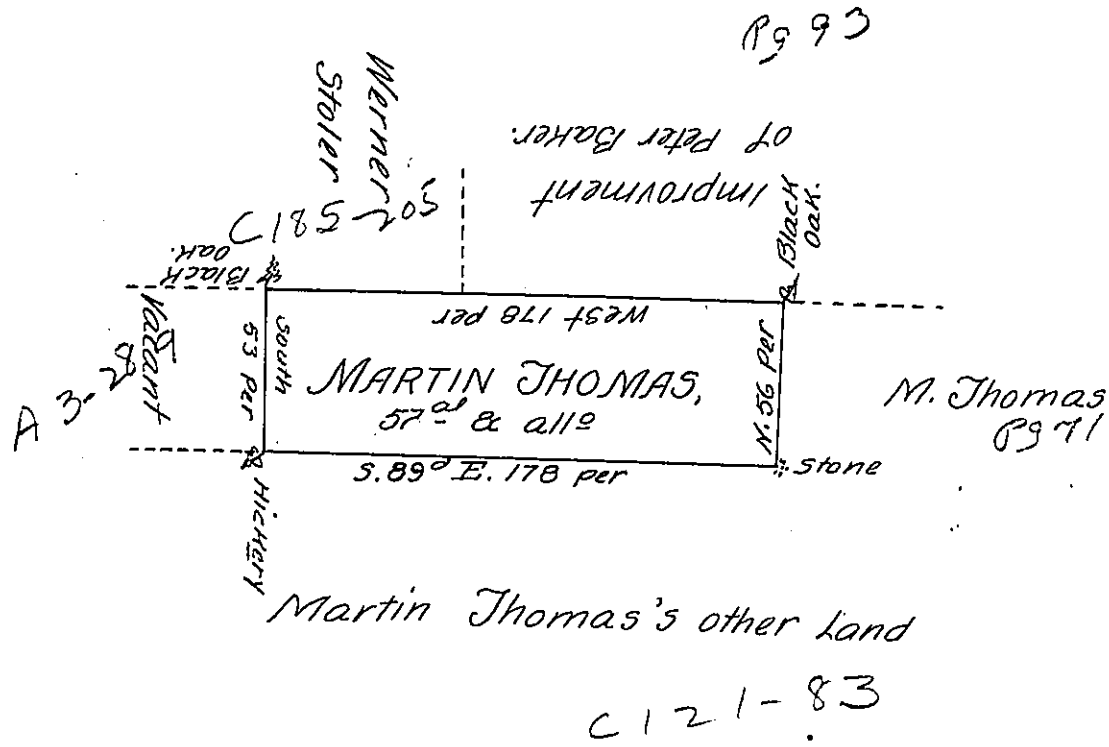 Pg 93
Werner
Stoler
C185-205
Improvment
of Peter Baker.
Black
Oak.
Black
Oak.
West 178 per
Vacant
A 3-28
South
53 Per
MARTIN THOMAS,
57ᵃ & allᵒ
N. 56 Per
M. Thomas
Pg 71
S. 89ᵈ E. 178 per
Stone
Hickery
Martin Thomas's other Land
C121-83